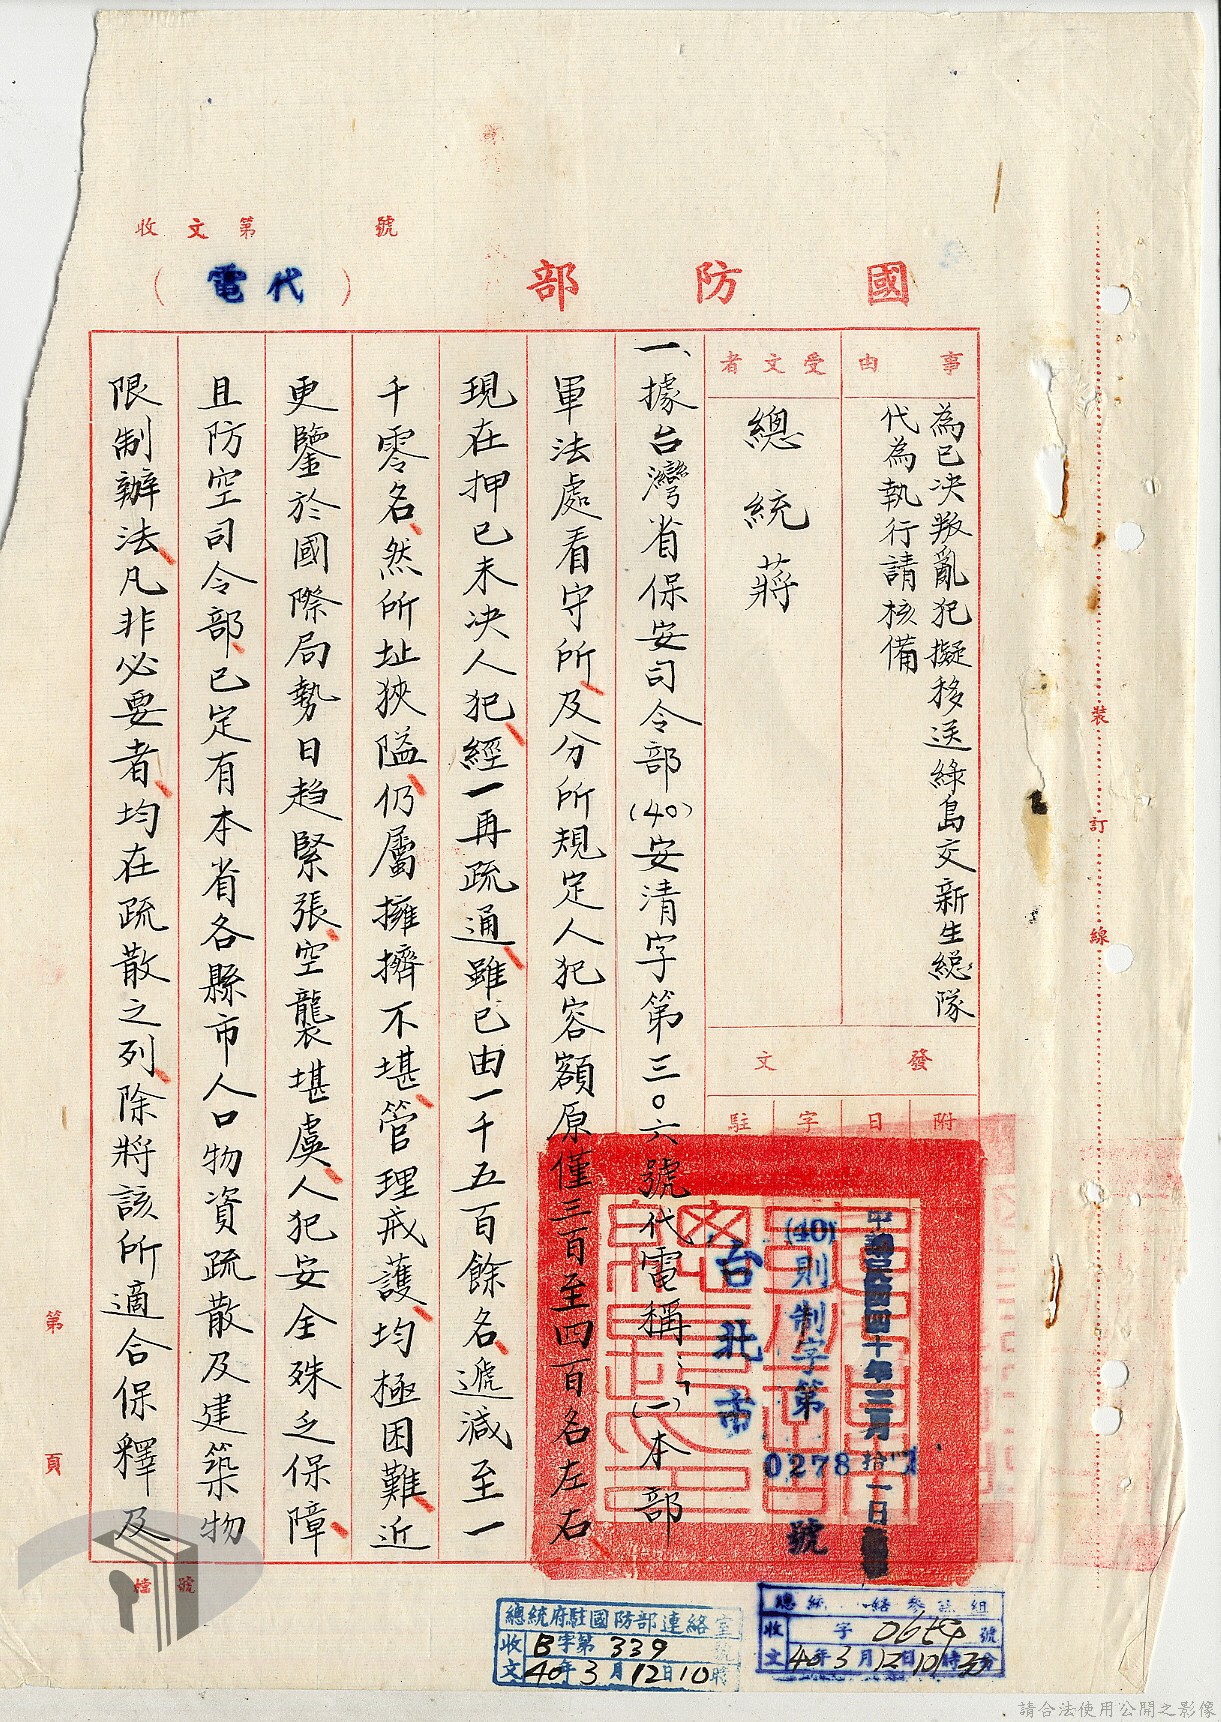 收文第 號
國防部
（代電）
事由
為已決叛亂犯擬移送綠島交新生總隊
代為執行請核備
受文者
總統蔣
發文
附
日
字
駐
中華民國四十年三月拾一日
(40)則制字第
0278
號
台北市
一、據台灣省保安司令部(40)安清字第三○六號代電稱：「(一)本部
軍法處看守所、及分所規定人犯容額原僅三百至四百名左右、
現在押已未決人犯、經一再疏通、雖已由一千五百餘名、遞減至一
千零名、然所址狹隘、仍屬擁擠不堪、管理戒護、均極困難、近
更鑒於國際局勢日趨緊張、空襲堪虞、人犯安全殊乏保障、
且防空司令部、已定有本省各縣市人口物資疏散及建築物
限制辦法、凡非必要者、均在疏散之列、除將該所適合保釋及
裝訂線
第
頁
檔號
總統府駐國防部連絡室
收文
B字第339
40年3月12日10時
收文
字 號
40年3月12日10時
請合法使用公開之影像